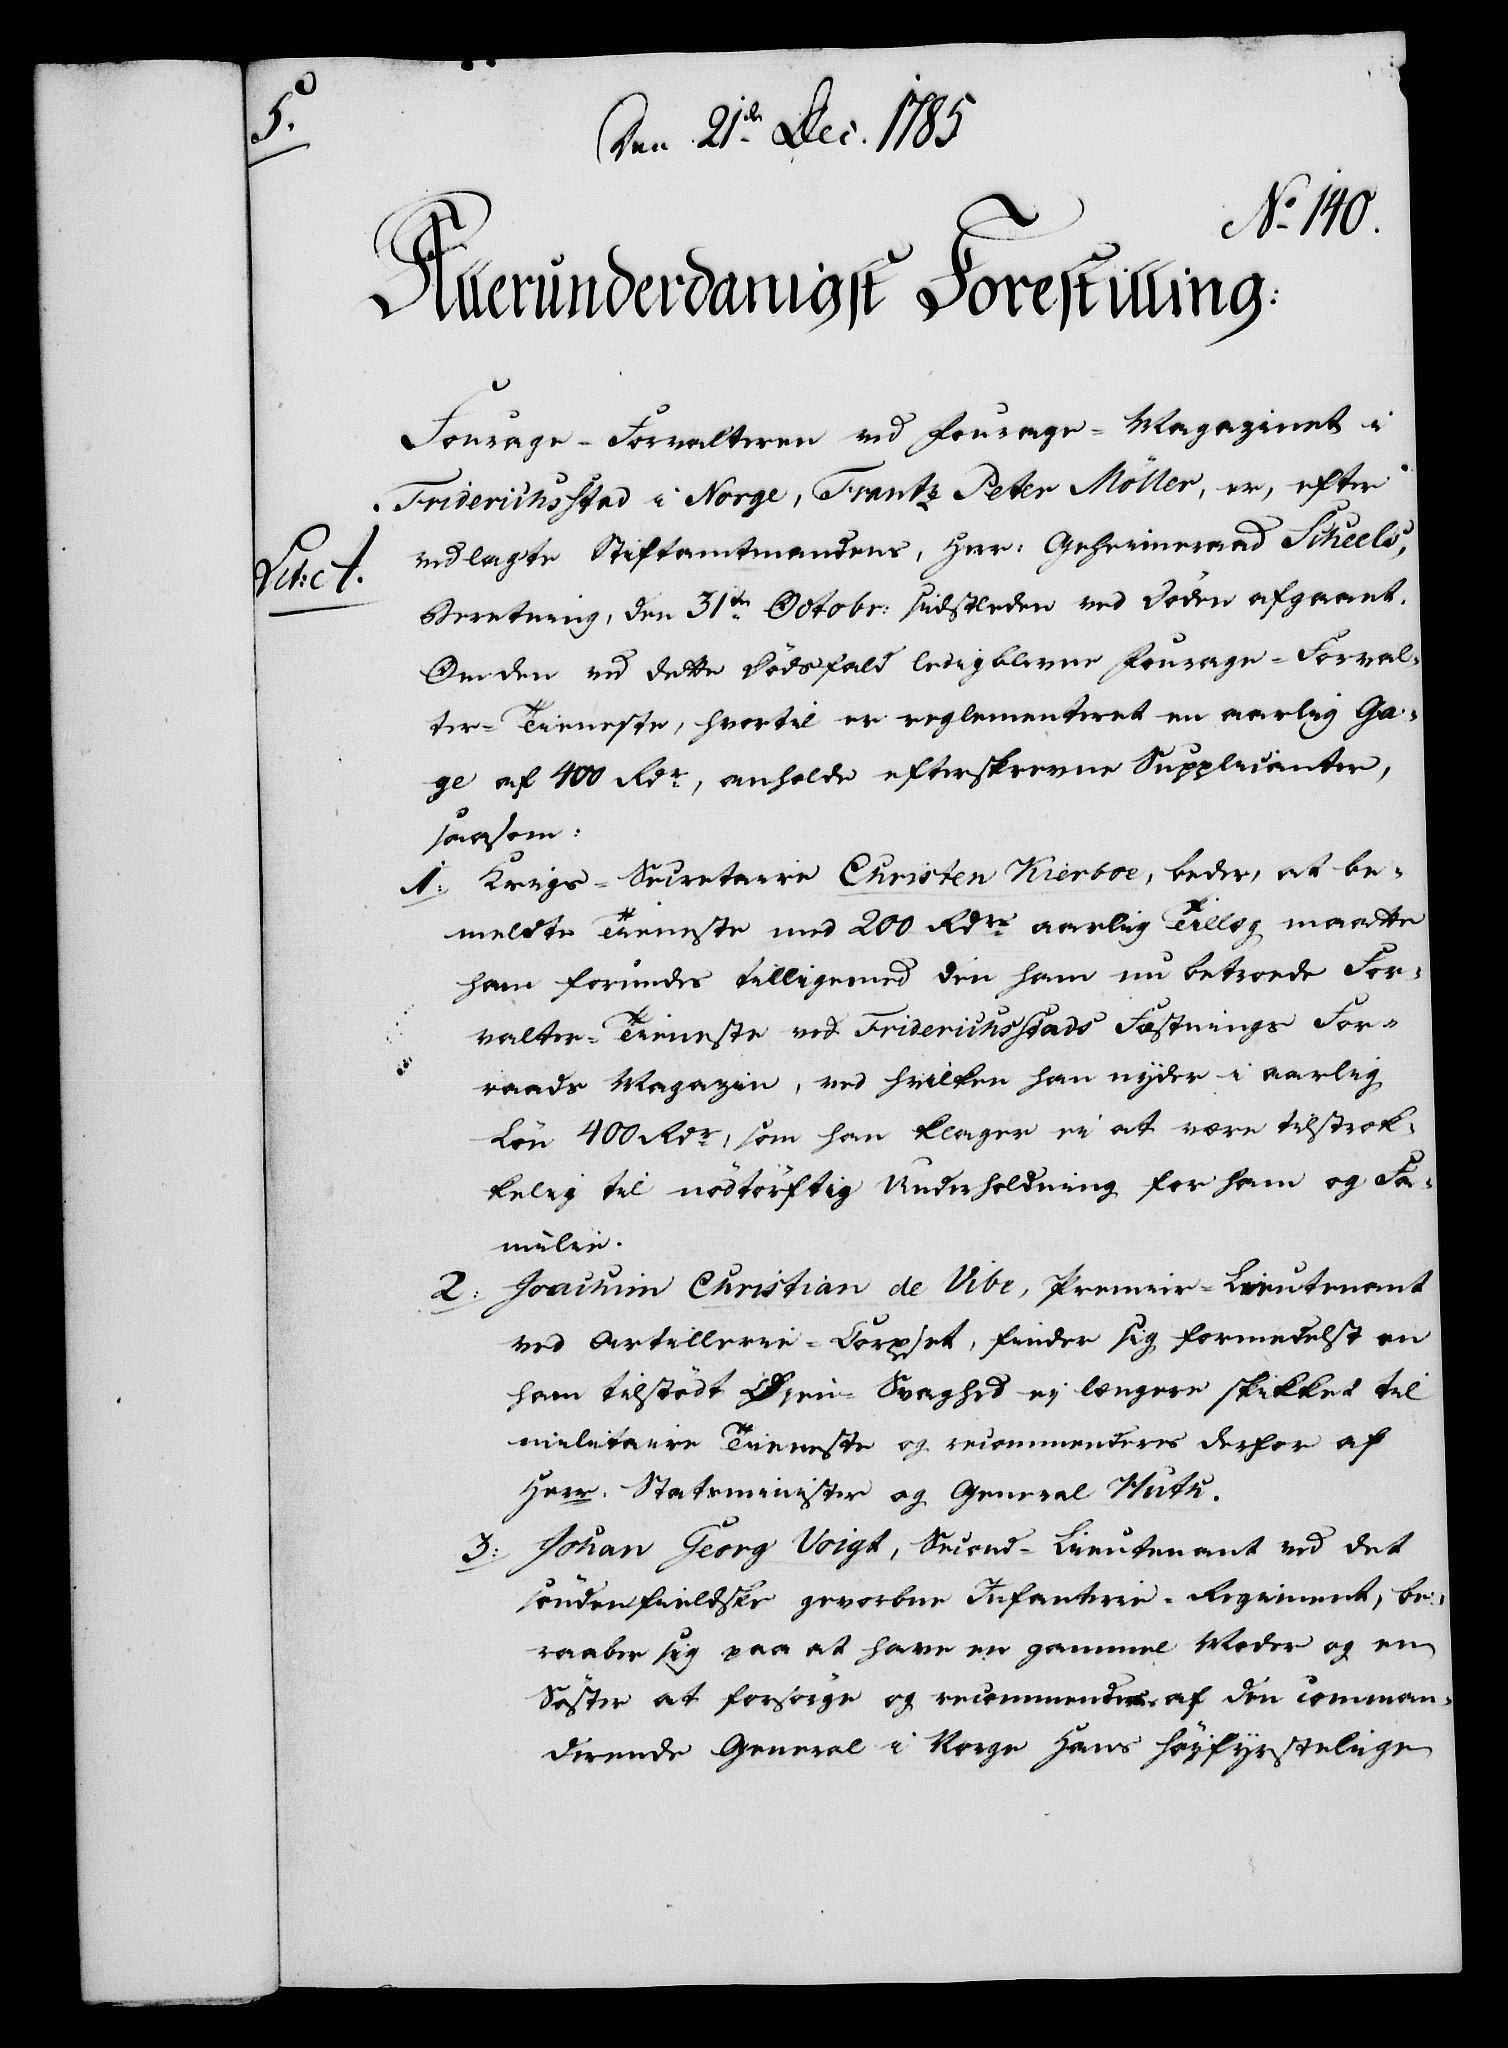 5.
Den 21de Dec. 1785
No 140.
Allerunderdanigst Forestilling:
Fourage-Forvalteren ved Fourage-Magazinet i
Friderichsstad i Norge, Frantz Peter Möller, er, efter
Lit: A.
vedlagte Stiftamtmandens, Herr: Geheimeraad Scheels,
Beretning, den 31te Octobr: sidstleden ved Döden afgaaet.
Om den ved dette Dödsfald ledigblevne Fourage-Forval-
ter-Tieneste, hvortil er reglementeret en aarlig Ga-
ge af 400 Rdr, anholde efterskrevne Supplicanter,
saasom:
1: Krigs-Secretaire Christen Kierboe, beder, at be-
meldte Tieneste med 200 Rdrs aarlig Tillæg maatte
ham forundes tilligemed den ham nu betroede For-
valter-Tieneste ved Friderichsstads Fæstnings For-
raads Magazin, ved hvilken han nyder i aarlig
Lön 400 Rdr, som han klager ei at være tilstræk-
kelig til nödtörftig Underholdning for ham og Fa-
milie.
2: Joachim Christian de Vibe, Premier-Lieutenant
ved Artillerie-Corpset, finder sig formedelst en
ham tilstödt Öyen-Svaghed ej længere skikket til
militaire Tieneste og recommenderes derfor af
Herr. Statsminister og General Huth.
3: Johan Georg Voigt, Second-Lieutenant ved det
söndenfieldske gevorbne Infanterie-Regiment, be-
raaber sig paa at have en gammel Moder og en
Söster at forsörge og recommenderes af den comman-
derende General i Norge Hans höyfyrstelige